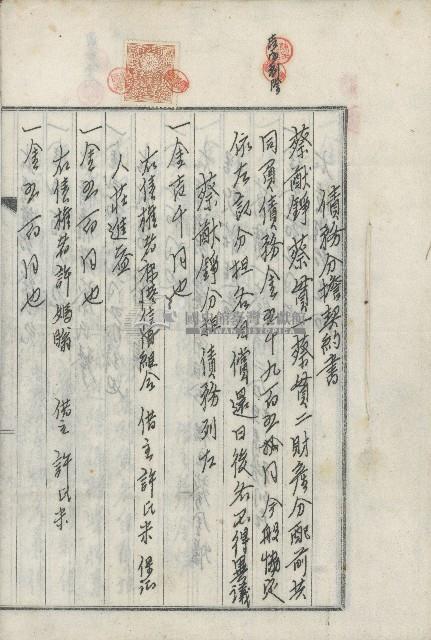 債務分擔契約書
蔡献錚蔡貫蔡貫二財產分配前共
同買債務金五千九百五拾円今般協定
依左記分担各自償還日後各不得異議
蔡献錚分担債務列左
一金壱千円也
右債權者 信用組合 借主許氏米 保証
人莊進益
一金五百円也
右債權者許媽 借主許氏米
一金五百円也
國史館臺灣文獻館
TAIWAN HISTORICA